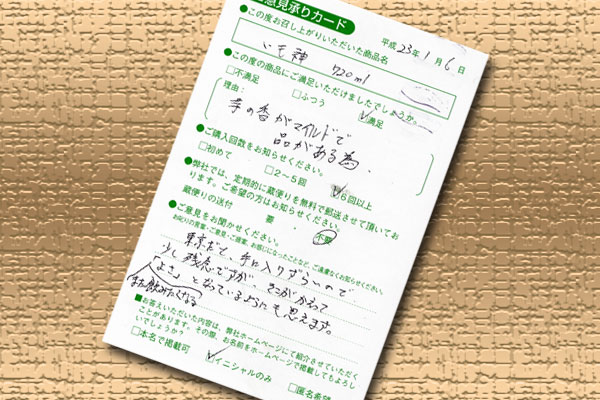 意見承りカード
●この度お召し上がりいただいた商品名
平成23年1月6日
いも神 720ml
●この度の商品にご満足いただけましたでしょうか。
□不満足 □ふつう ☑満足
理由:
芋の香がマイルドで
品がある為、
●ご購入回数をお知らせください。
□初めて □2～5回 ☑6回以上
●弊社では、定期的に蔵便りを無料で郵送させて頂いてお
ります。ご希望の方はお知らせください。
蔵便りの送付 要 ・ 不要
●ご意見をお聞かせください。
お叱りの言葉・ご意見・ご提案、お感じになったことなど、ご遠慮なくお知らせください。
東京だと、手に入りずらいので
少し残念ですが、そこがかえって
「よさ」となっているようにも思えます。
また飲みたくなる
■お答えいただいた内容は、弊社ホームページにて紹介させていただく
ことがあります。その際、お名前をホームページで掲載してもよろし
いでしょうか?
□本名で掲載可 ☑イニシャルのみ □匿名希望